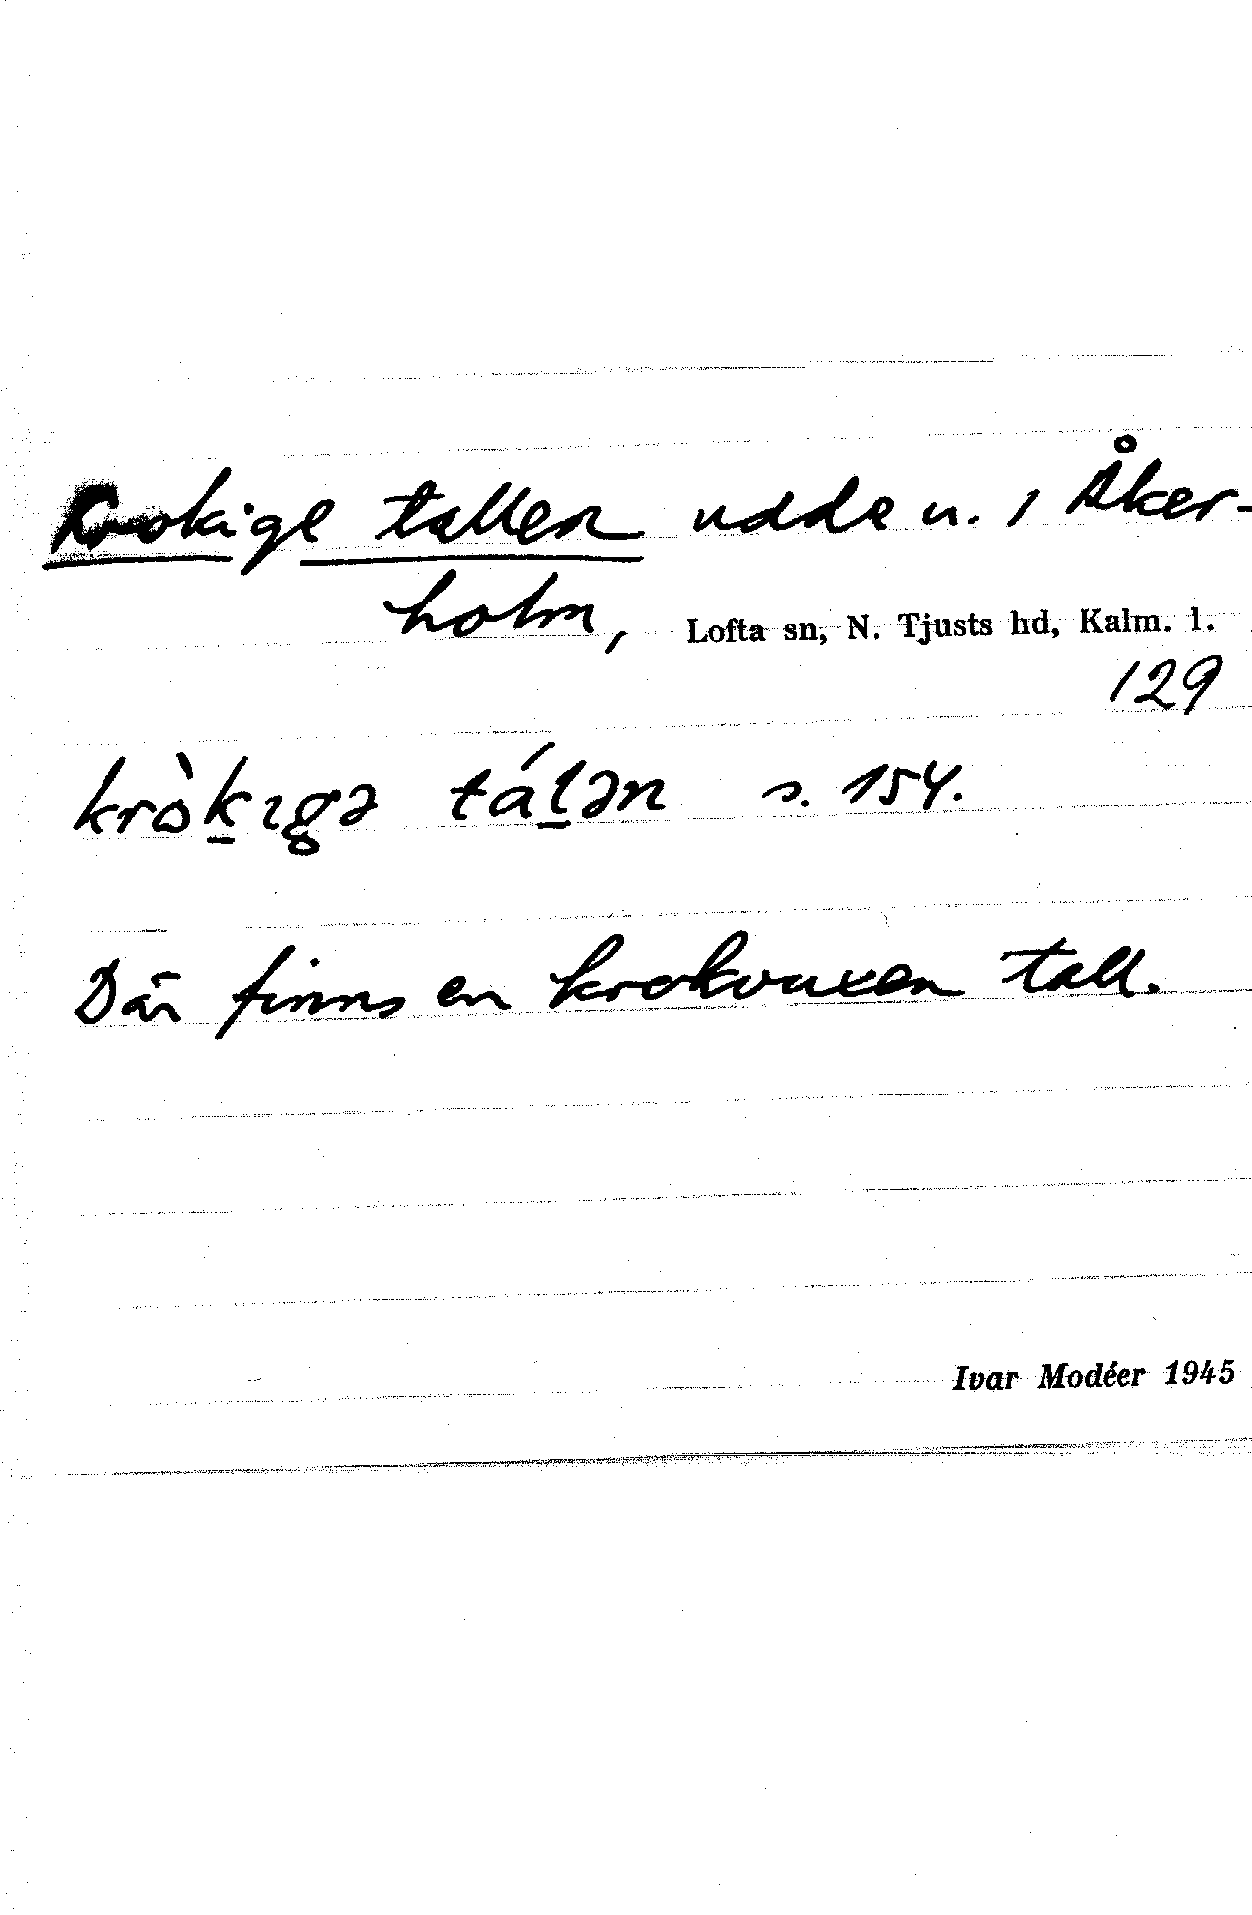 Krokige tallen udde u. / Åker-
holm, Lofta sn, N. Tjusts hd, Kalm. l.
129
kròk̲ıgə tál̲ən s. 154.
Där finns en krokvuxen tall.
Ivar Modéer 1945